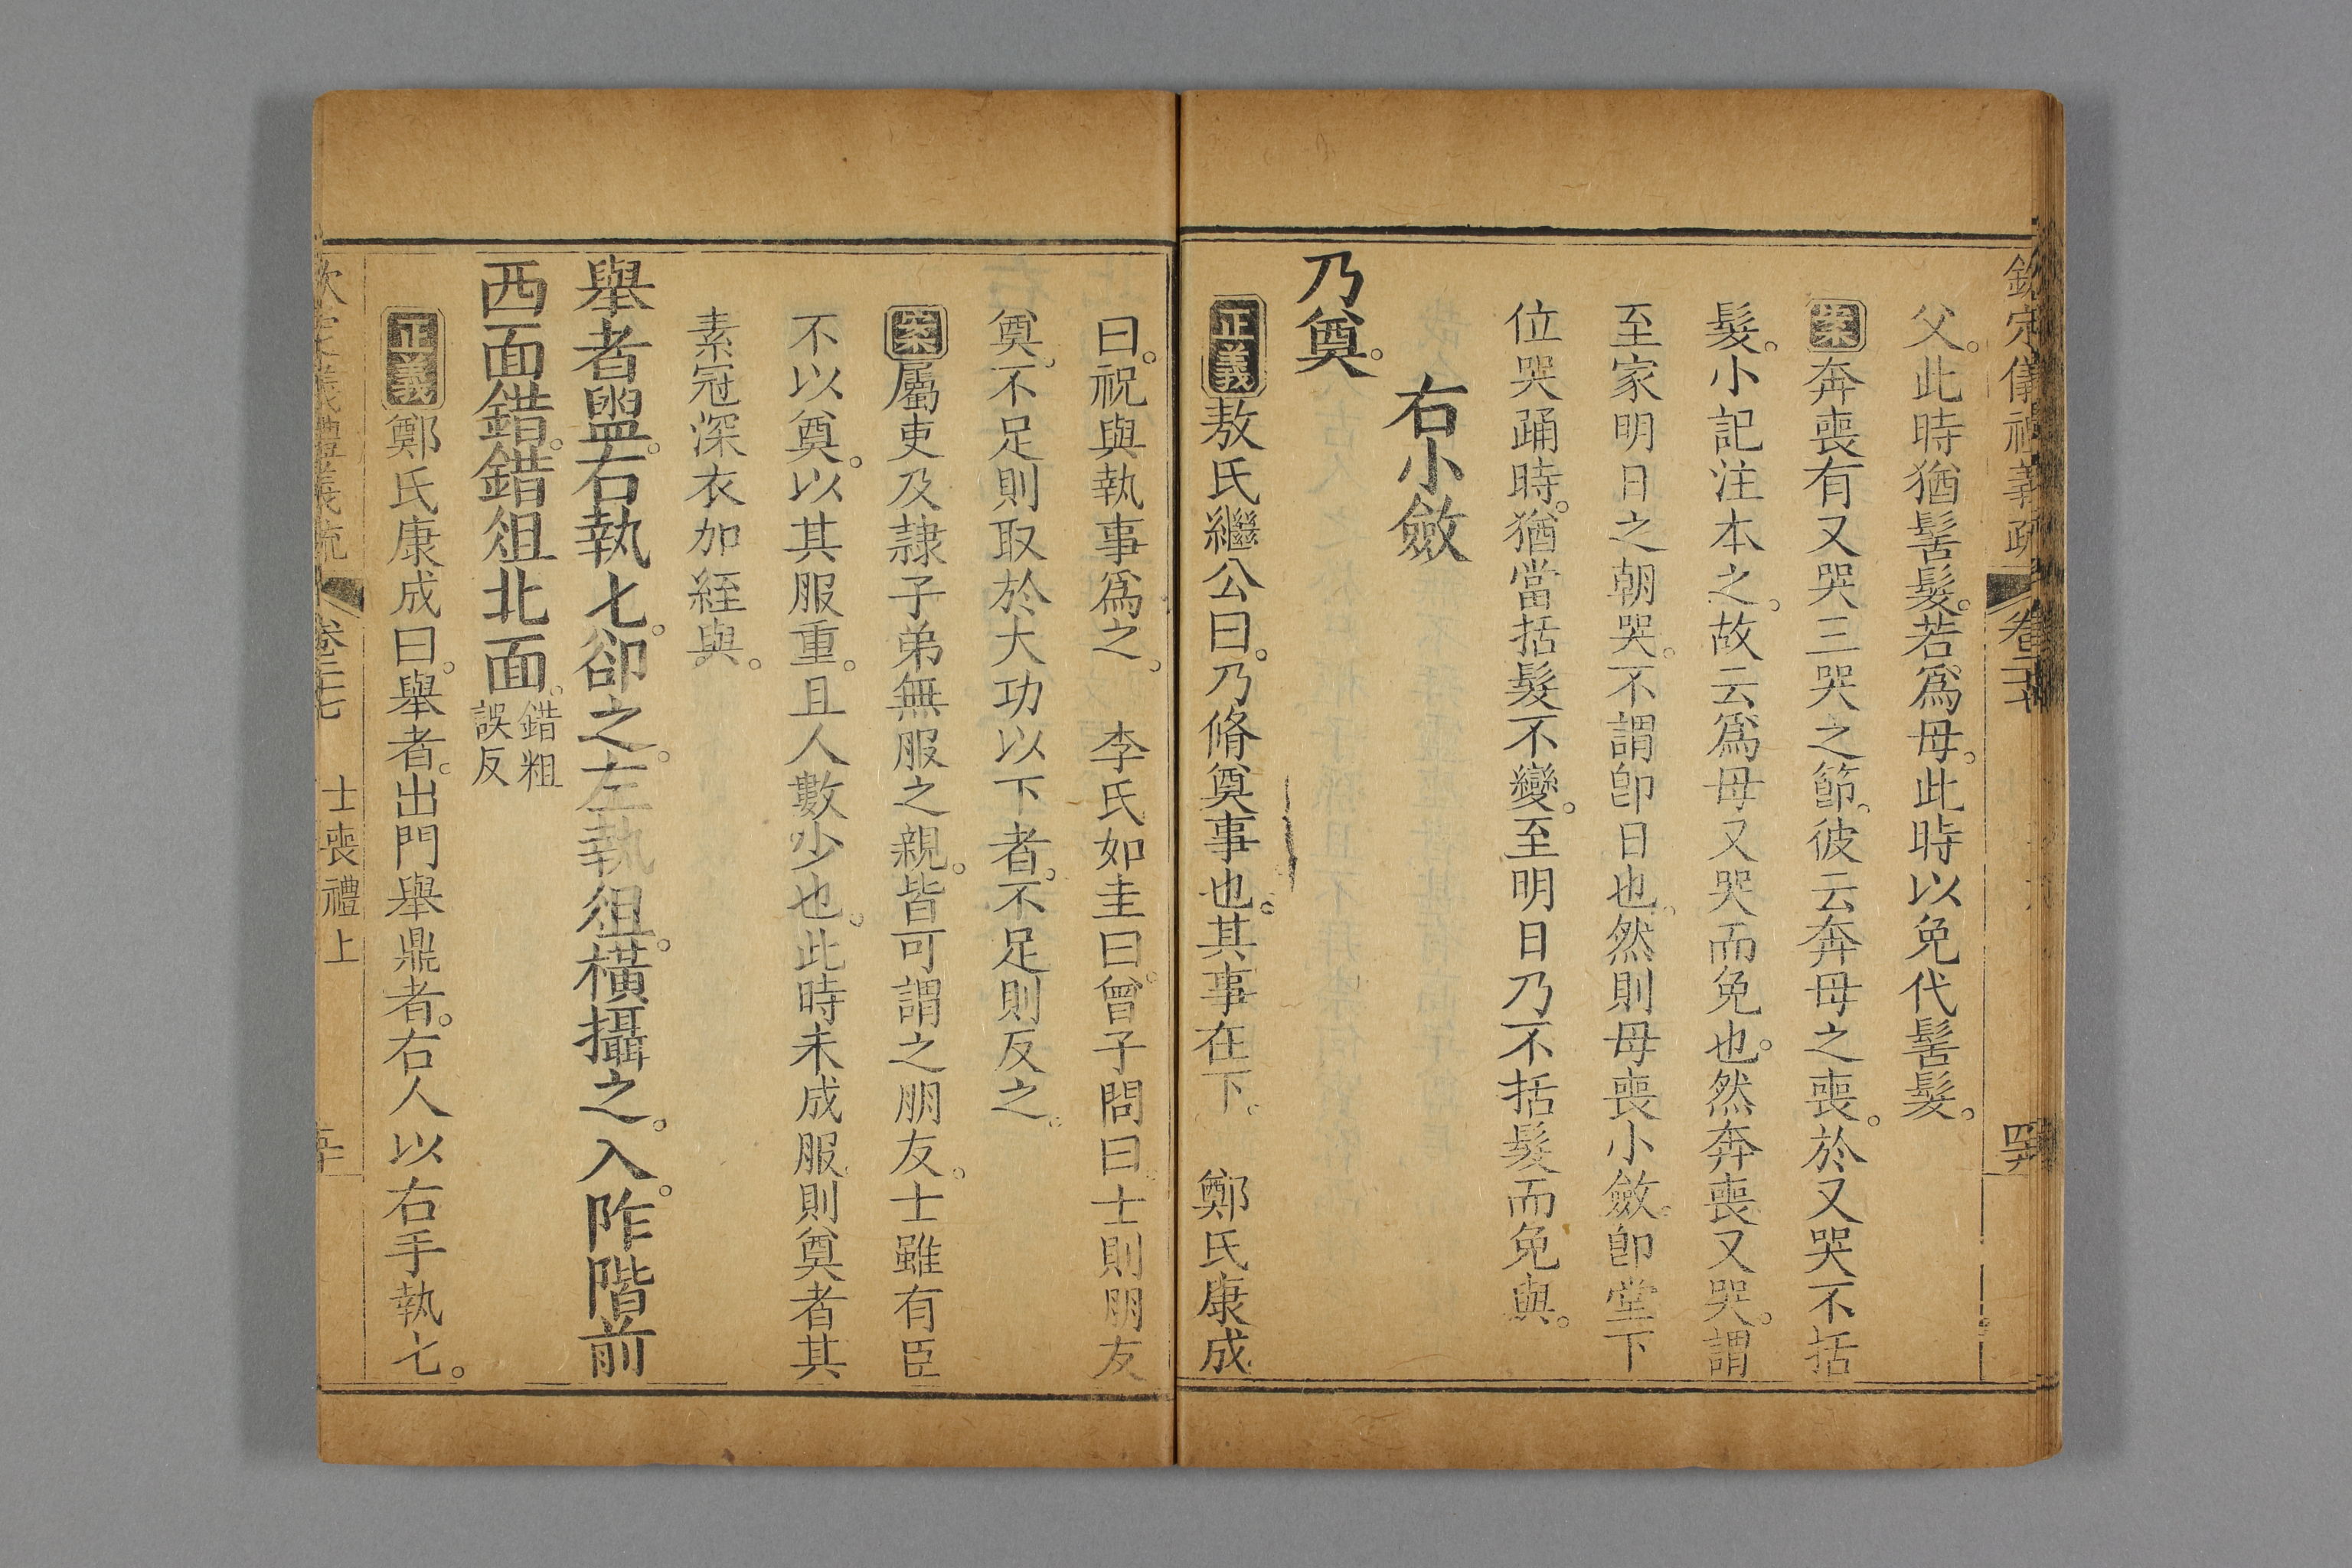 欽定儀禮義疏 卷二十七
父。此時猶髻髮。若爲母。此時以免代髻髮。
案奔喪有又哭三哭之節。彼云奔母之喪。於又哭不括
髮。小記注本之。故云爲母又哭而免也。然奔喪又哭。謂
至家明日之朝哭。不謂卽日也。然則母喪小斂。卽堂下
位哭踊時。猶當括髮不變。至明日乃不括髮而免與。
右小斂
乃奠。
正義敖氏繼公曰。乃脩奠事也。其事在下。 鄭氏康成
曰。祝與執事爲之。 李氏如圭曰。曾子問曰。士則朋友
奠。不足則取於大功以下者。不足則反之。
案屬吏及隷子弟無服之親。皆可謂之朋友。士雖有臣
不以奠。以其服重。且人數少也。此時未成服。則奠者其
素冠深衣加絰與。
舉者盥。右執匕。卻之。左執俎。橫攝之。入。阼階前
西面錯。錯俎北面。錯粗
誤反
正義鄭氏康成曰。舉者。出門舉鼎者。右人以右手執匕。
欽定儀禮義疏 卷二十七 士喪禮上